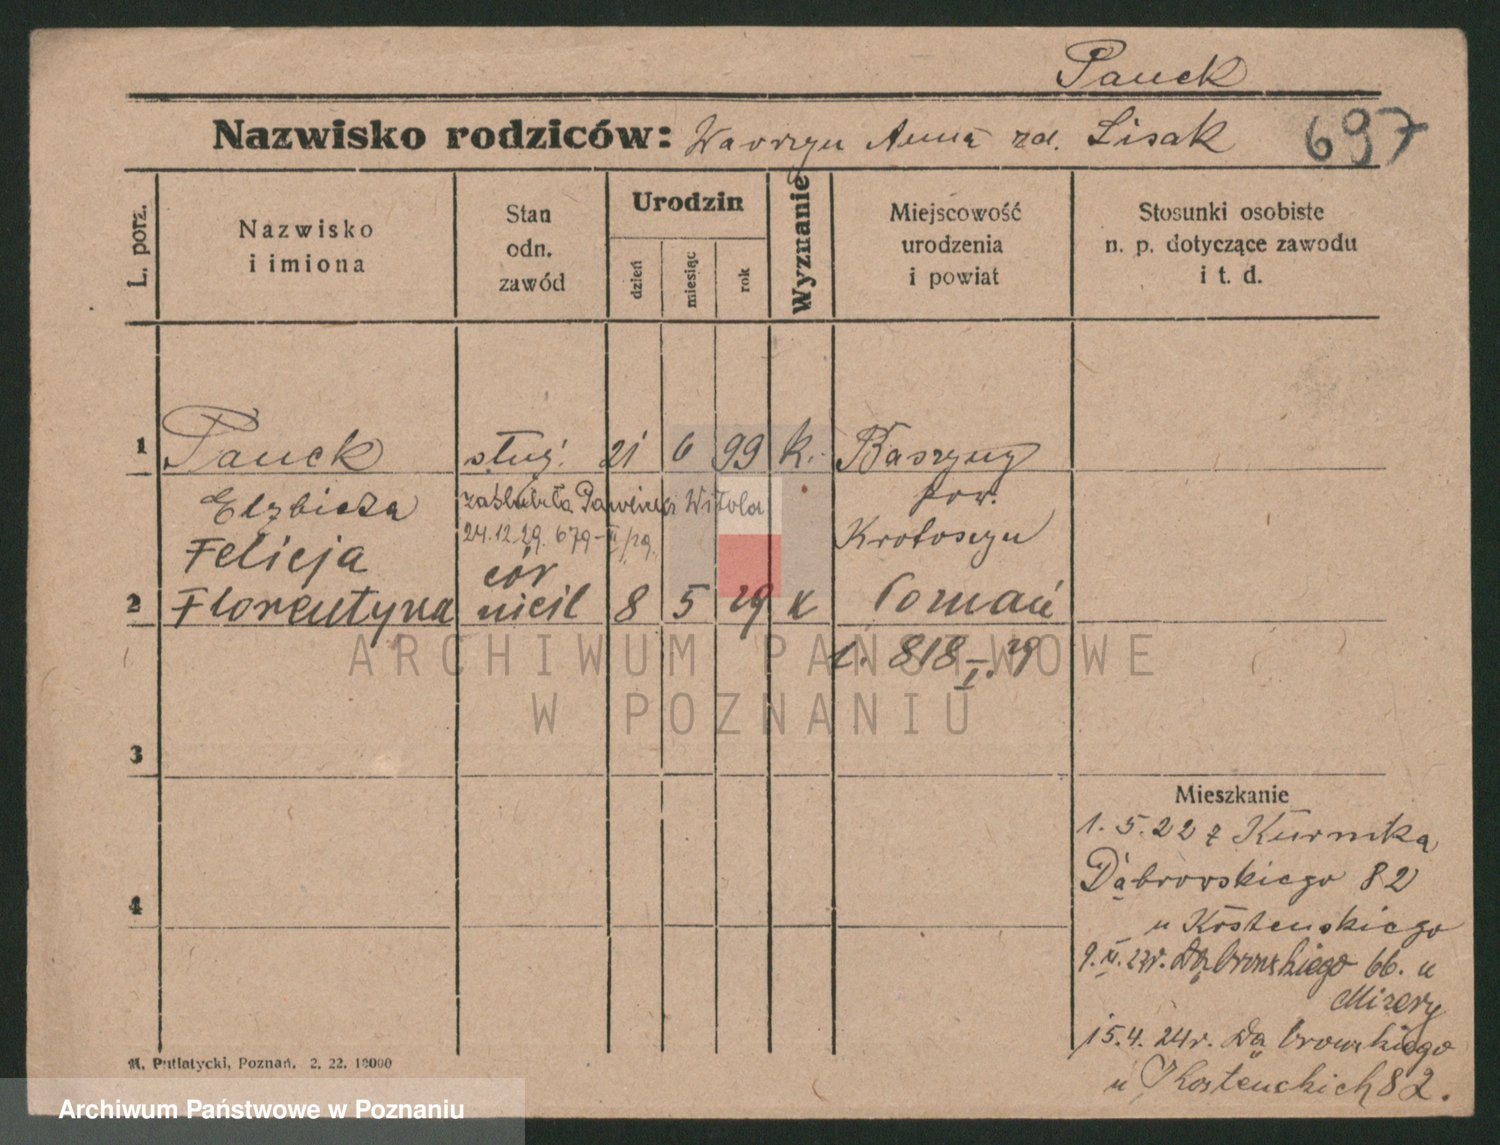 Pauck
Nazwisko rodziców: Wawrzyn Anna zd. Lisak 697
L. porz.
Nazwisko
i imiona
Stan
odn.
zawód
Urodzin
dzień
miesiąc
rok
Wyznanie
Miejscowość
urodzenia
i powiat
Stosunki osobiste
n. p. dotyczące zawodu
i t. d.
1 Pauck służ. 21 6 99 k. Baszyny
Elzbieta zaślubiła Witola pow.
24.12.29. 679-II/pq. Krotoszyn
Felicja cór
2 Florentyna nieśl 8 5 29 k Poznań
l. 818 I. 29
ARCHIWUM PAŃSTWOWE
W POZNANIU
3
Mieszkanie
1.5.22 z Kurnika
Dąbrowskiego 82
4
u Kostenskiego
Dąbrowskiego 66. u
Mizery
15.4.24r. Dąbrowskiego
u 82.
M. Putiatycki, Poznań. 2. 22. 10000
Archiwum Państwowe w Poznaniu